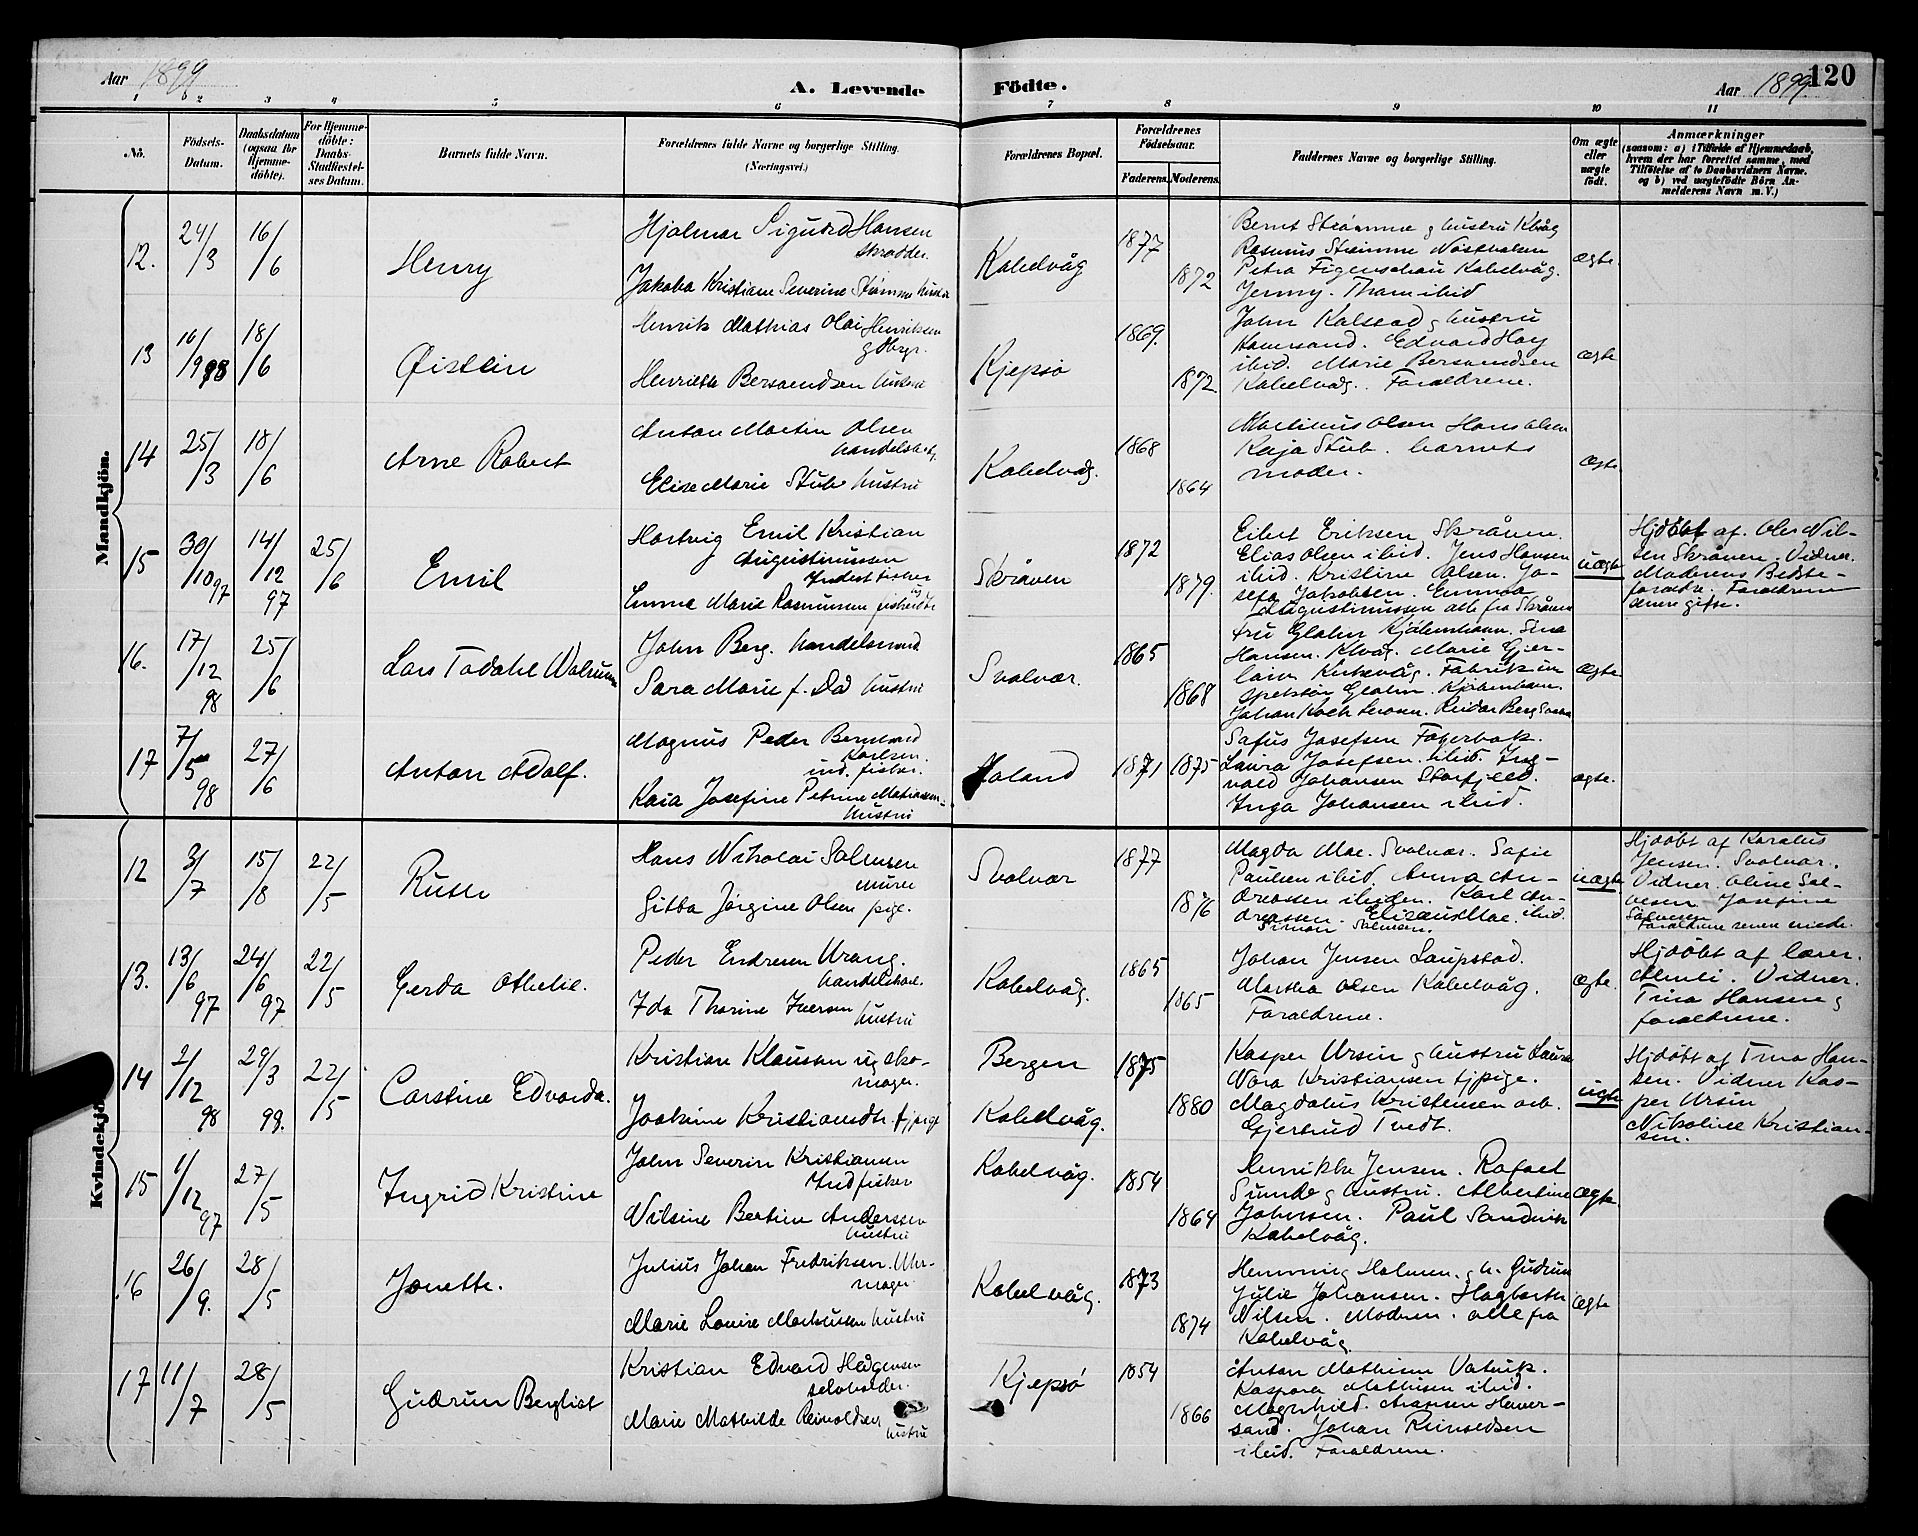 Aar 1899
A. Levende Födte.
Aar 1899.
120
1 2 3 4 5 6 7 8 9 10 11
No.
Födsels-Datum.
Daabsdatum (ogsaa for Hjemme-döbte).
For Hjemme-döbte: Daabs-Stadfæstel-ses Datum.
Barnets fulde Navn.
Forældrenes fulde Navne og borgerlige Stilling. (Næringsvei.)
Forældrenes Bopæl.
Forældrenes Födselsaar.
Faderens. Moderens.
Faddernes Navne og borgerlige Stilling.
Om ægte eller uægte födt.
Anmærkninger
(saasom: a) i Tilfælde af Hjemmedaab,
hvem der har forrettet samme, med
Tilföielse af to Daabsvidners Navne.
og b) ved uægtefödte Börn An-
melderens Navn m. V.)
Mandkjön.
12. 24/3 16/6
Henry
Hjalmar Sigurd Hansen
skrædder
Jakoba Kristiane Severine Strømme hustru
Kabelvåg
1877
1872
Bernt Strømme & hustru Kbvåg
Rasmus Strømme
Petra Figenschau Kabelvåg.
Jenny Tham ibid
Ægte
13 10/9 98 18/6
Øistein
Henrik Mathias Olai Henriksen
gdbgr.
Henriette Berntsen hustru
Kjepsø
1869.
1872
John Kalstad & hustru
Edvard Hay
ibid. Marie
Kabelvåg. Forældrene.
Ægte
14 25/3 18/6
Arne Robert
Anton Martin Olsen
handelsbest.
Elise Marie Stub hustru
Kabelvåg.
1868
1864
Martinus Olsen Hans Olsen
Kaja Stub. barnets
moder.
Ægte
15 30/10 97 14/12 97 25/6
Emil
Hartvig Emil Kristian
Augustinussen
Indst fisker
Emma Marie Rasmussen
Skråven
1872
1879.
Eibert Eriksen Skråven.
Elias Olsen ibid. Jens Hansen
ibid. Kristine Olsen. Jo-
sefa Jakobsen. Emma
Augustinussen alle fra Skråven
uægte
Hjdöbt af Ole Nil-
sen Skråven. Vidner.
Moderens Bedste-
forældre. Forældrene
senere gifte.
16. 17/12 98 25/6
Lars Todahl Walnum
John Berg. handelsmand
Sara Marie f. Dal hustru
Svolvær.
1865
1868
Fru Glahn Kjøbenhavn. Sina
Hansen. Kbvåg. Marie Gjer-
Kirkevåg. Fabrikin
spektør Glahn. Kjøbenhavn.
Johan Koch Reidar Berg
Ægte
17 7/5 98 27/6
Anton Adolf.
Magnus Peder Bernhard
Karlsen.
ind. fisker.
Kaia Josefine Petrine Mathiassen
hustru
Holand
1871 1875
Safus Josefsen Fagerbak.
Laura Josefsen ibid. Ing-
vald Johansen Storfjeld.
Inga Johansen ibid.
ægte.
Kvindekjön.
12 3/7 15/8 22/5
Ruth
Hans Nikolai Salvesen
murer
Gitta Jørgine Olsen pige.
Svolvær
1877
1876
Magda Moe. Svolvær. Sofie
Paulsen ibid. Anna An-
dreassen ibiden. Karl An-
dreassen. Elisæus Moe. ibid.
Simon Salvesen.
uægte
Hjdöbt af
Jensen. Svolvær.
Vidner. Oline Sal-
vesen Josefine
13. 13/6 97 24/6 97 22/5
Gerda Othelie.
Peder Endresen Urang.
handelskarl.
Ida Thorine Iversen
hustru
Kabelvåg.
1865
1865
Johan Jensen Laupstad.
Martha Olsen Kabelvåg.
Forældrene.
Ægte.
Hjdöbt af lærer.
Almli. Vidner.
Tina Hansen &
forældrene.
14 2/12 98 29/3 99. 22/5
Carstine Edvarda.
Kristian Klausen ug sko-
mager.
Joakine Kristiansdtr. tjpige
Bergen
Kabelvåg.
1875
1880
Kasper Ursin & hustru Laura
Nora Kristiansen tjpige.
Magdalus Kristensen arb.
Gjertrud Tvedt.
uægte
Hjdöbt af Tina Han-
sen. Vidner Kas-
per Ursin
Nikoline Kristian-
sen.
15 1/12 97 27/5
Ingrid Kristine
John Severin Kristiansen
Indfisker
Nilsine Bertine Anderssen
hustru
Kabelvåg.
1854
1864
Henrikke Jensen. Rafael
Sunde & hustru. Albertine
Johnsen. Paul Sandvik
Kabelvåg.
Ægte
16 26/9. 28/5
Jonette.
Julius Johan Fredriksen. Uhr-
mager
Marie Lovise Markussen hustru
Kabelvåg.
1873
1874
Henning Holmen. & h. Gudrun
Julie Johansen. Hagbarth
Nilsen. Modren. alle fra
Kabelvåg
Ægte
17 11/7 28/5
Gudrun Bergliot
Kristian Edvard Helgesen
selvholder.
Marie Mathilde Reinoldsen
hustru
Kjepsø
1854
1866
Anton Mathisen Votvik.
Kaspara Mathisen ibid.
Magnhild. Hansen Hever-
sand. Johan Reinoldsen
ibid. Forældrene.